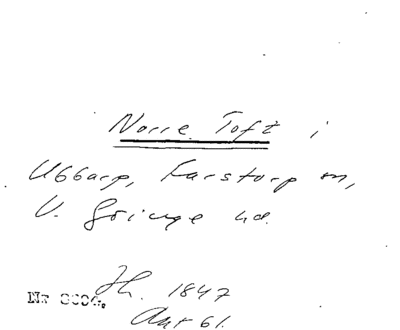 Norre Toft i
Ubbarp, Farstorp sn,
V. Göinge hd.
Jh. 1847
Akt 61.